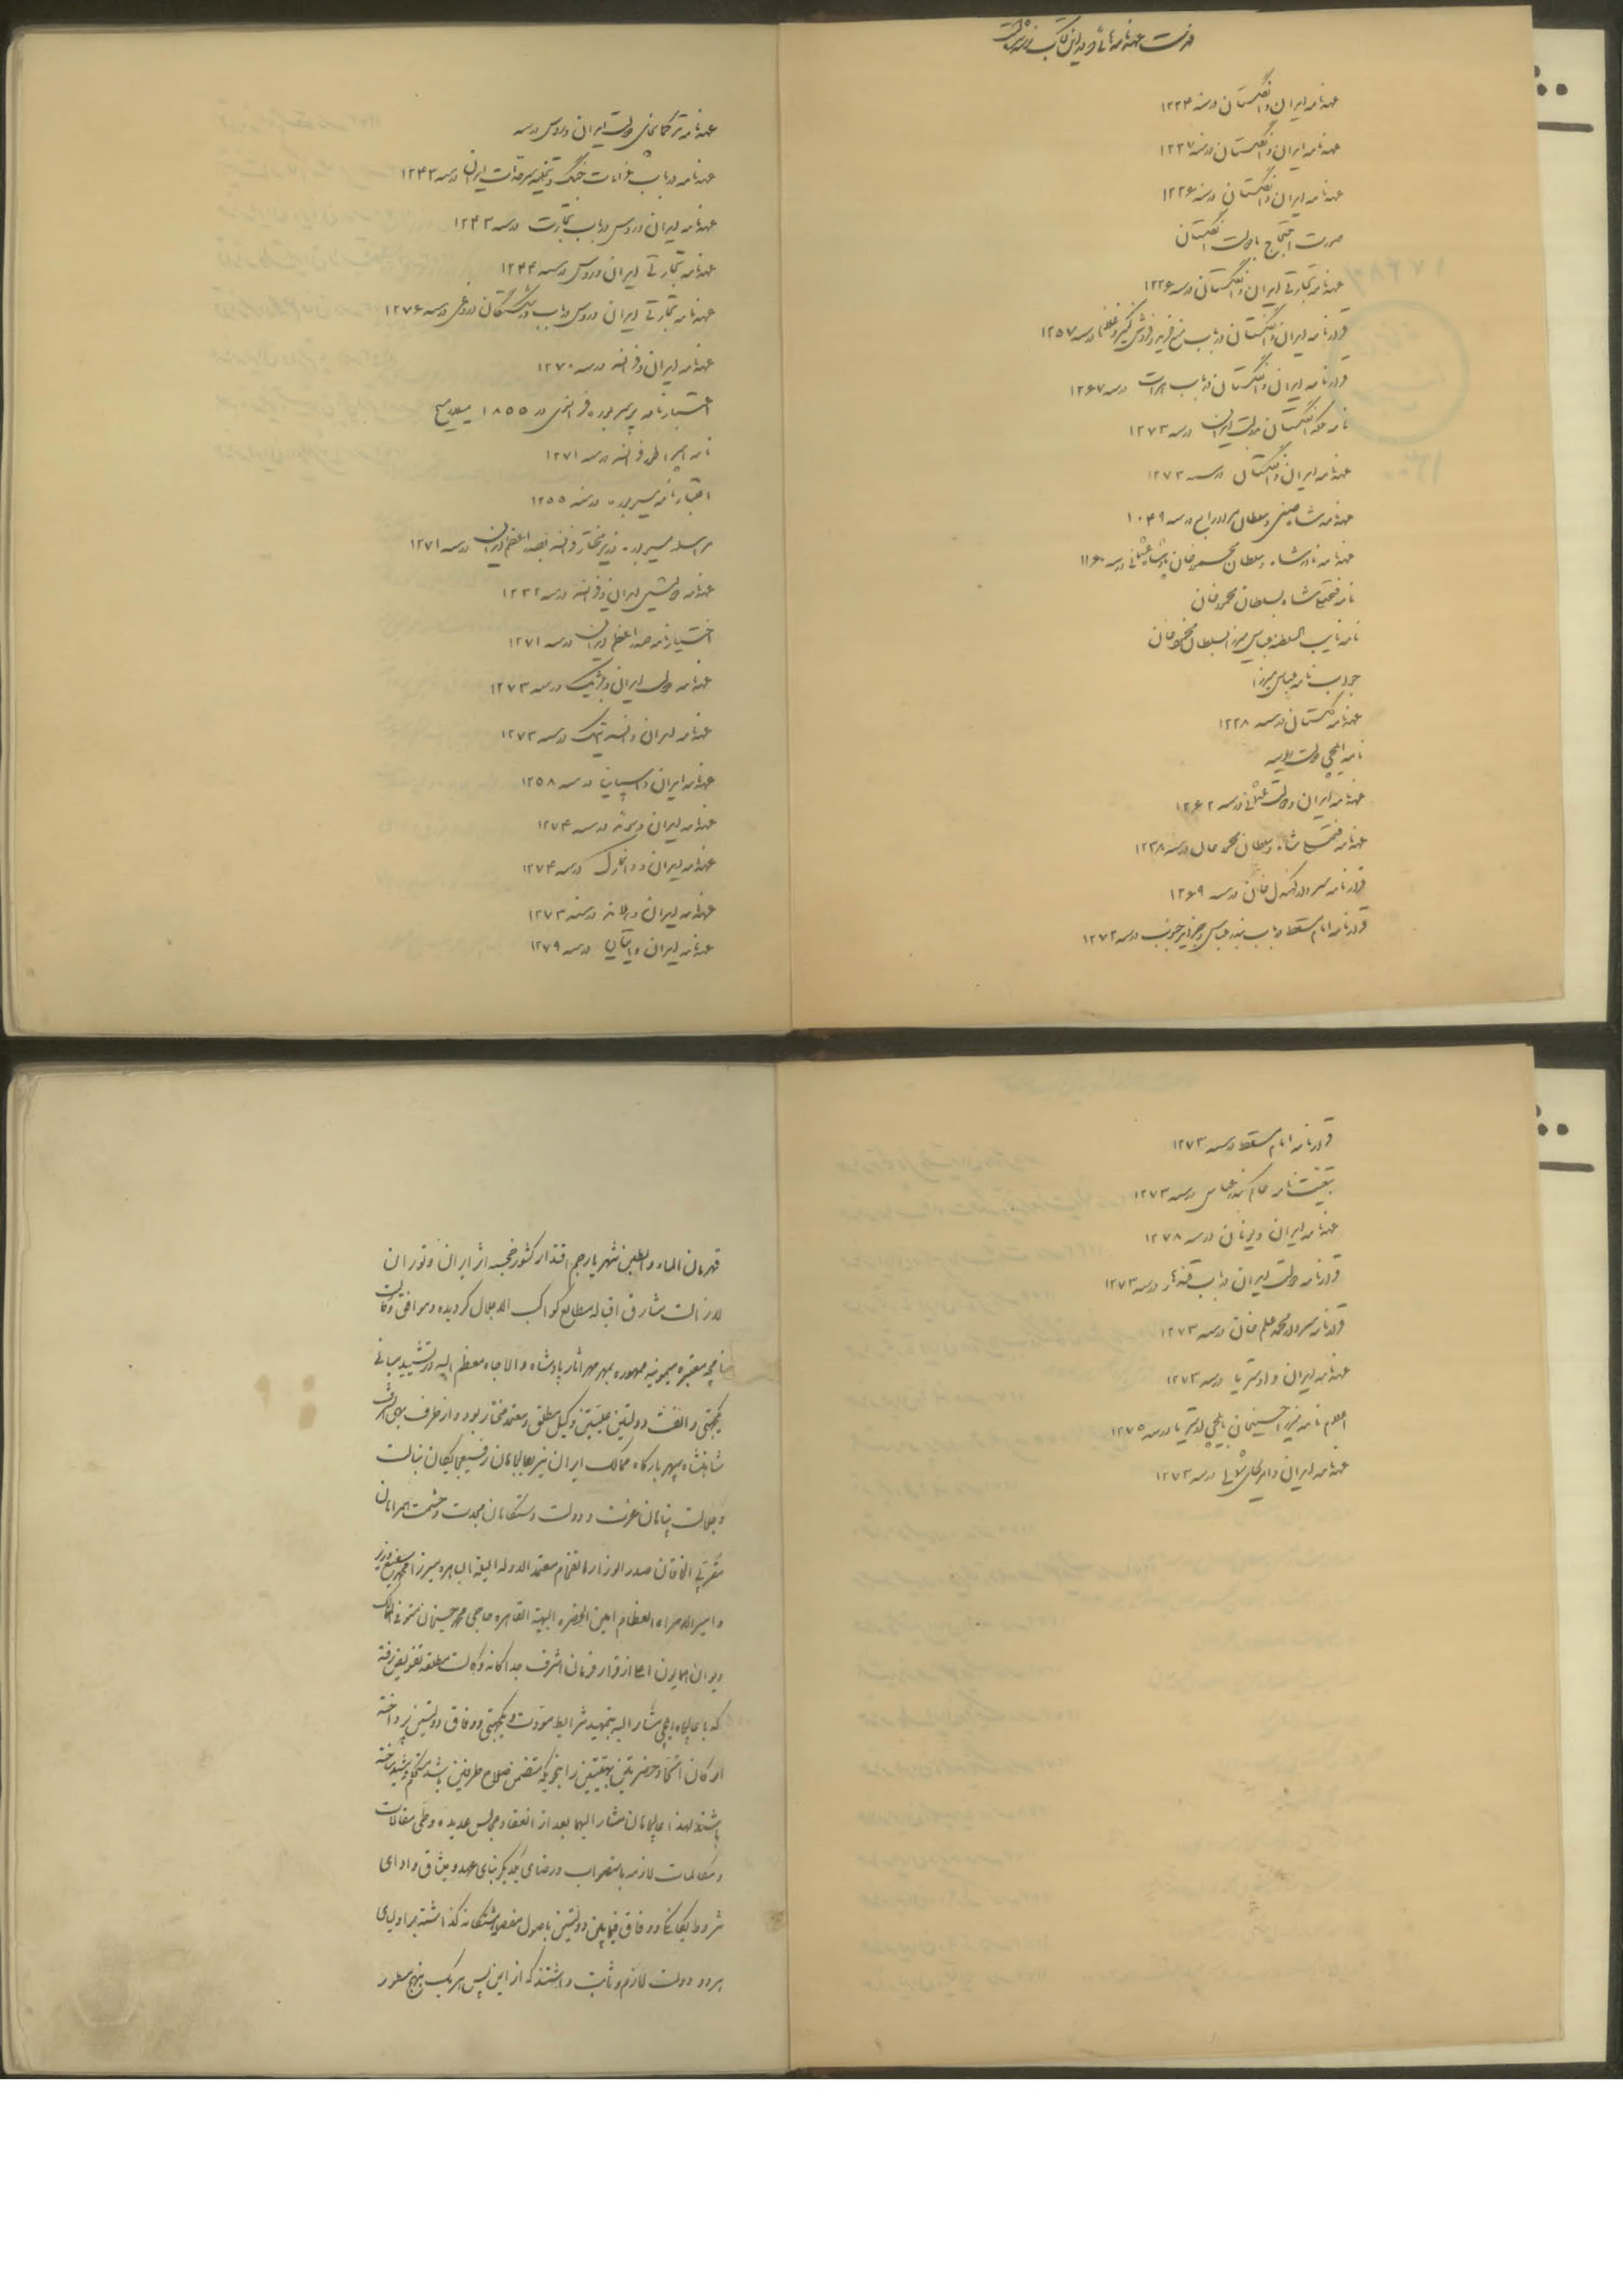 فهرست عهدنامه‌هائی که در این کتاب نوشته شده است
عهدنامه ایران و انگلستان در سنه ۱۲۲۴
عهدنامه ایران و انگلستان در سنه ۱۲۲۷
عهدنامه ایران و انگلستان در سنه ۱۲۲۶
صورت احتجاج با دولت انگلستان
عهدنامه تجارتی ایران و انگلستان در سنه ۱۲۲۶
قرارنامه ایران و انگلستان در باب منع خرید و فروش کنیز و غلام در سنه ۱۲۵۷
قرارنامه ایران و انگلستان در باب هرات در سنه ۱۲۶۷
نامه ملکه انگلستان بدولت ایران در سنه ۱۲۷۳
عهدنامه ایران و انگلستان در سنه ۱۲۷۳
عهدنامه شاه صفی و سلطان مراد رابع در سنه ۱۰۴۹
عهدنامه نادرشاه و سلطان محمود خان پادشاه عثمانی در سنه ۱۱۶۰
نامه فتحعلیشاه بسلطان محمود خان
نامه نایب السلطنه عباس میرزا بسلطان محمود خان
جواب نامه عباس میرزا
عهدنامه گلستان در سنه ۱۲۲۸
نامه ایلچی دولت روسیه
عهدنامه ایران و دولت عثمانی در سنه ۱۲۶۲
عهدنامه فتحعلیشاه و سلطان محمود خان در سنه ۱۲۳۸
قرارنامه سردار کهندل خان در سنه ۱۲۶۹
قرارنامه امام مسقط در باب بندر عباس و جزایر جنوب در سنه ۱۲۷۲
عهدنامه ترکمانچای دولت ایران و روس در سنه
عهدنامه در باب غرامات جنگ و تخلیه سرحدات ایران در سنه ۱۲۴۳
عهدنامه ایران و روس در باب تجارت در سنه ۱۲۴۳
عهدنامه تجارتی ایران و روس در سنه ۱۲۴۴
عهدنامه تجارتی ایران و روس در باب ورشکستگان دروغی در سنه ۱۲۷۶
عهدنامه ایران و فرانسه در سنه ۱۲۷۰
اختیارنامه پرسپر بوره فرانسوی در ۱۸۵۵ میلاد مسیح
نامه امپراطور فرانسه در سنه ۱۲۷۱
اختیارنامه مسیو بوره در سنه ۱۲۵۵
مراسله مسیو بوره وزیر مختار فرانسه بصدراعظم ایران در سنه ۱۲۷۱
عهدنامه دولتین ایران و فرانسه در سنه ۱۲۲۲
اختیارنامه صدراعظم ایران در سنه ۱۲۷۱
عهدنامه دولت ایران و بلژیک در سنه ۱۲۷۳
عهدنامه ایران و هنسه‌تیک در سنه ۱۲۷۳
عهدنامه ایران و اسپانیا در سنه ۱۲۵۸
عهدنامه ایران و نمسه در سنه ۱۲۷۴
عهدنامه ایران و دانمارک در سنه ۱۲۷۴
عهدنامه ایران و در سنه ۱۲۷۳
عهدنامه ایران و ایتالیا در سنه ۱۲۷۹
قرارنامه امام مسقط در سنه ۱۲۷۳
تبعیت‌نامه حاکم بندر عباس در سنه ۱۲۷۳
عهدنامه ایران و یونان در سنه ۱۲۷۸
قرارنامه دولت ایران در باب قندهار در سنه ۱۲۷۳
قرارنامه سردار محمد علم خان در سنه ۱۲۷۳
عهدنامه ایران و اوستریا در سنه ۱۲۷۳
اعلام نامه میرزا حسینخان با ایلچی اوستریا در سنه ۱۲۷۵
عهدنامه ایران و امریکای شمالی در سنه ۱۲۷۳
قهرمان الماء و الطین شهریار جم اقتدار کشور خجسته اثر ایران و توران
لازالت مشارق اقباله مطالع کواکب الاجلال گردیده و موافق وکالت
نامچه معتبره میمونه ممهوره بمهر مهرآثار پادشاه والاجاه معظم الیه در تشیید مبانی
یکجهتی و الفت دولتین علیتین وکیل مطلق و معتمد مختار بود و از طرف بهی الشرف
شاهنشاه سپهر بارگاه ممالک ایران نیز بعالیجاهان رفیعجایگاهان نبالت
و جلالت پناهان عزت و دولت دستگاهان مجدت و حشمت همراهان
مقربی الخاقان صدر الوزراء الفخام معتمد الدوله العلیه الباهره میرزا محمد شفیع وزیر
و امیر الامراء العظام امین الحضره البهیه القاهره حاجی محمد حسینخان مستوفی الممالک
دیوان همایون اعلا از قرار فرمان اشرف جداگانه وکالت مطلقه تفویض رفته
که با عالیجاه ایلچی مشار الیه بتمهید شرایط مودت و یکجهتی و وفاق دولتین پرداخته
ارکان اتحاد حضرتین بهیتین را بنحویکه متضمن صلاح طرفین باشد مستحکم و مشید ساخته
باشند لهذا عالیجاهان مشار الیهما بعد از انعقاد مجالس عدیده و طی مقالات
و مکالمات لازمه باستصواب و رضای یکدیگر بنای عهد و میثاق و ادای
شروط یگانگی و وفاق فیمابین دولتین باصول مفصله هشتگانه گذاشته بر اولیای
هر دو دولت لازم و ثابت داشتند که از این پس هر یک بنهج مسطور